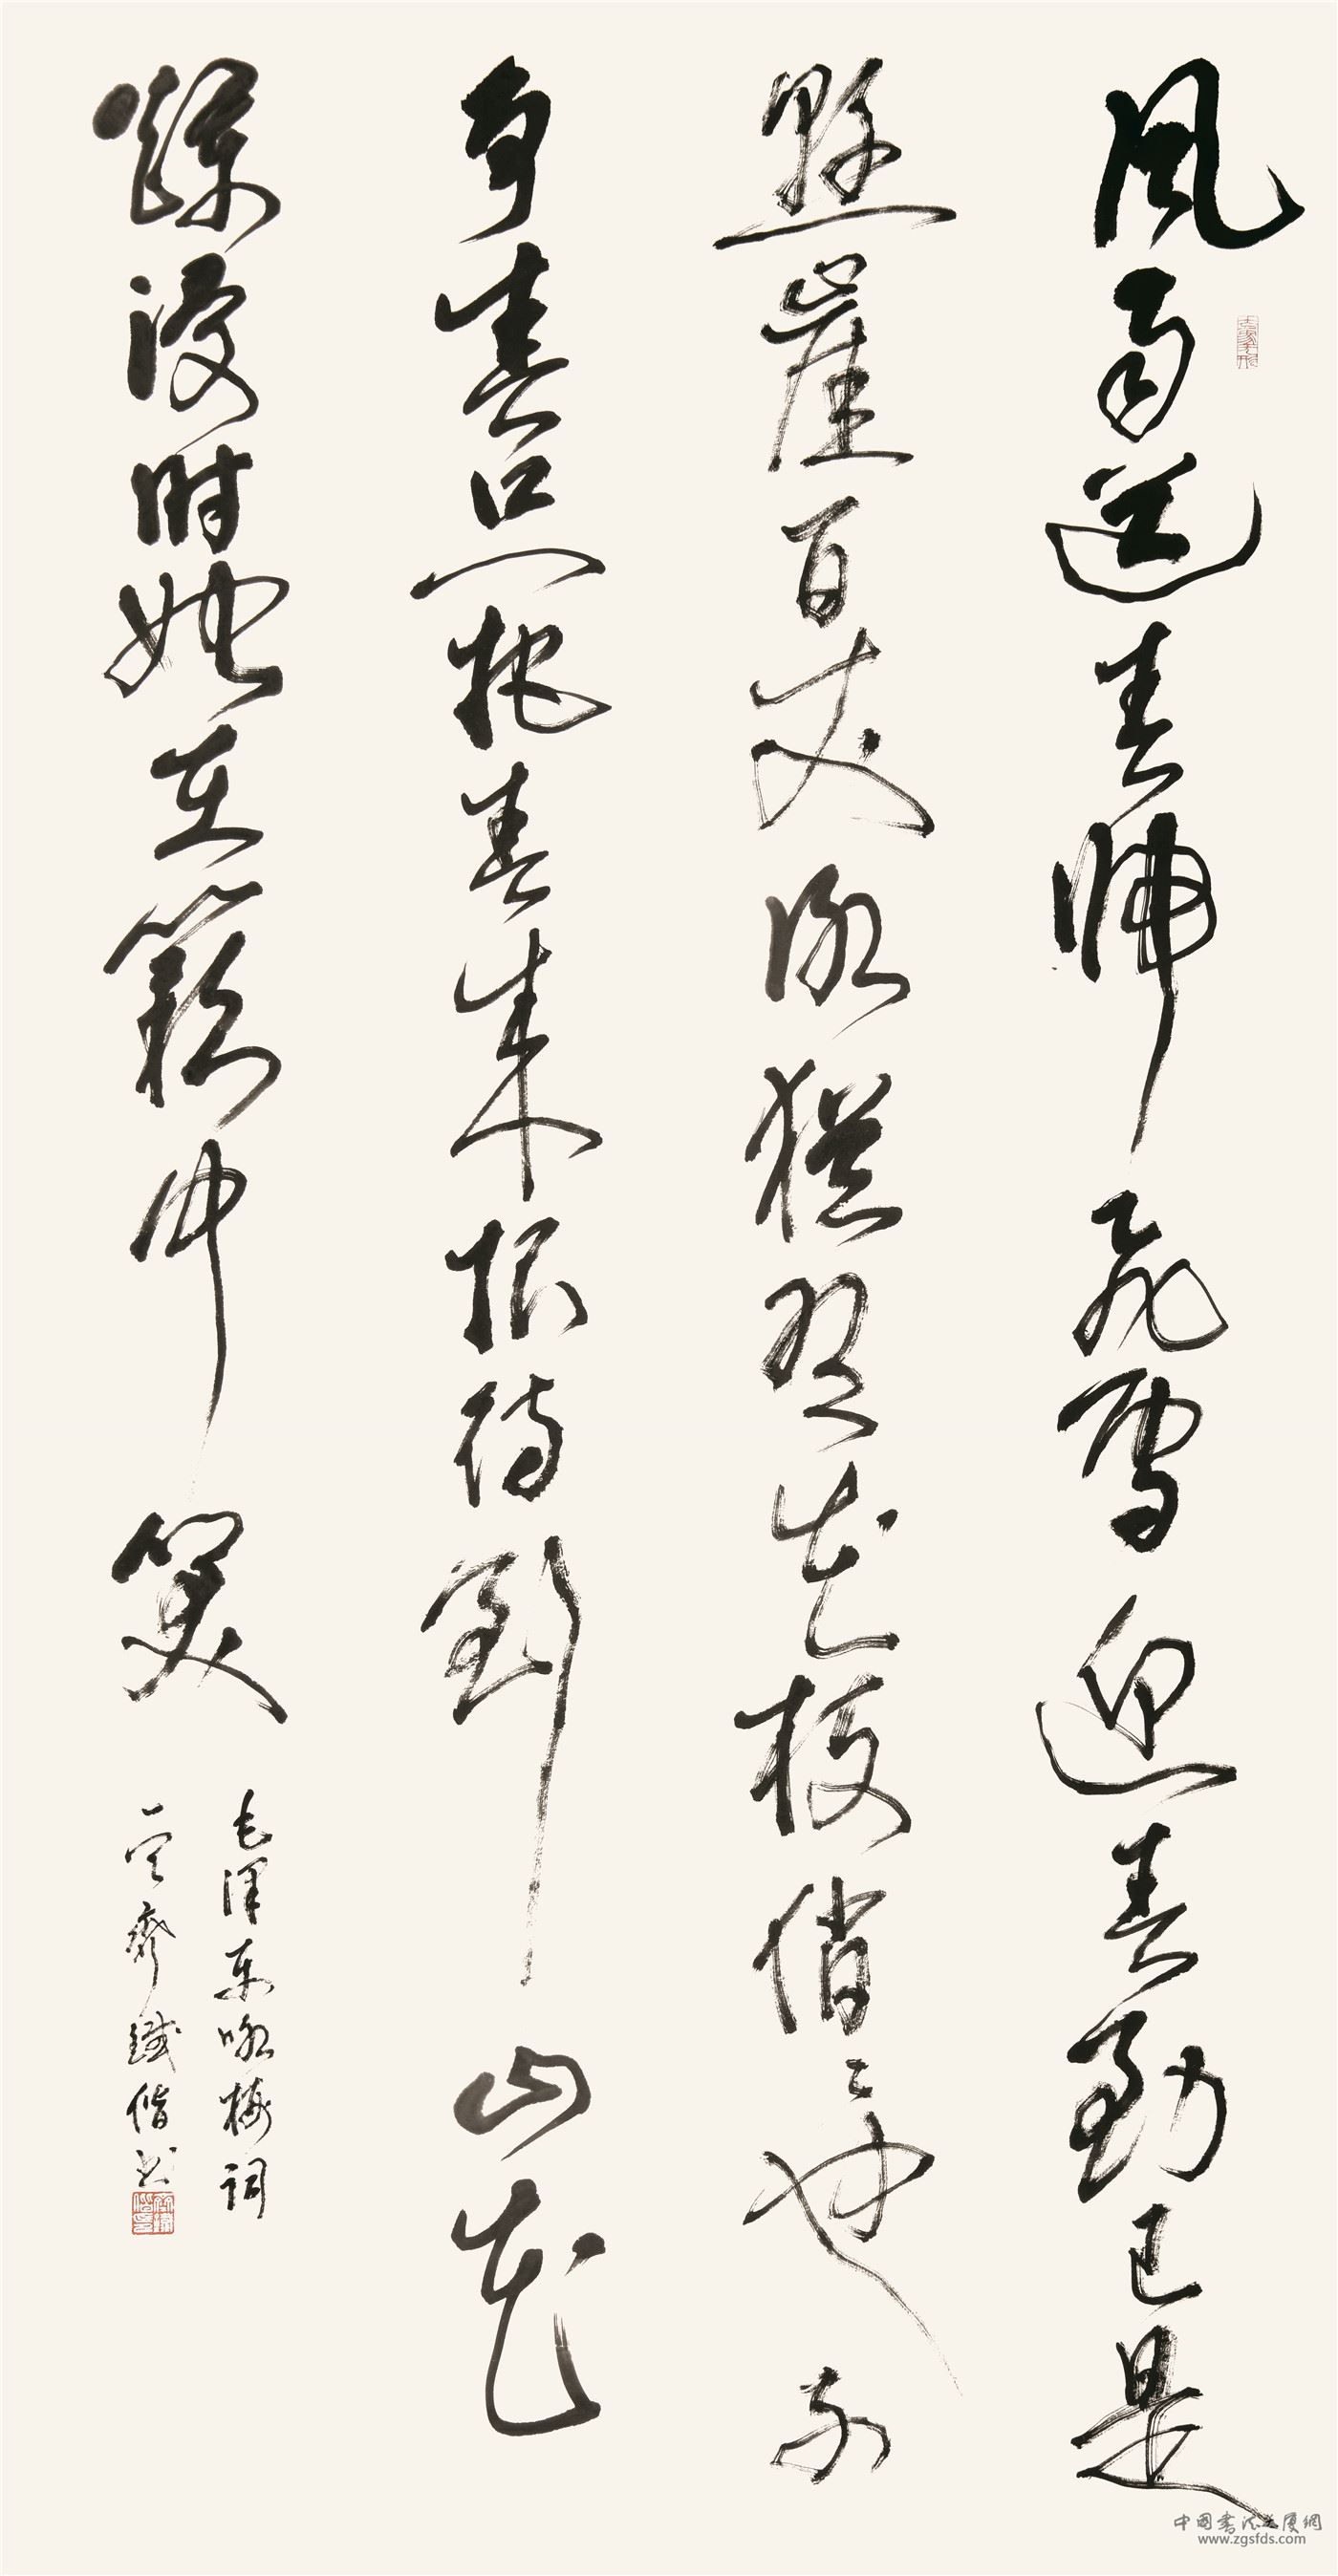 風雨送春歸飛雪迎春到已是
懸崖百丈冰猶有花枝俏々也不
争春只把春來报待到山花
爛漫时她在叢中笑
毛澤東咏梅詞
一空齋鐵偕书
中國書法大廈網
www.zgsfds.com